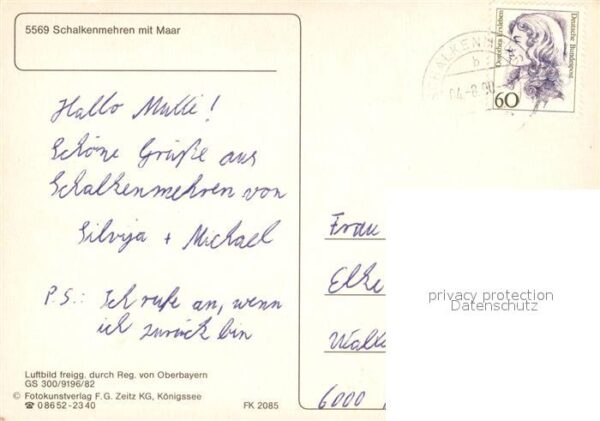 5569 Schalkenmehren mit Maar
Hallo Mutti!
Schöne Grüße aus
Schalkenmehren von
Silvija + Michael
P.S.: Ich rufe an, wenn
ich zurück bin
Luftbild freigg. durch Reg. von Oberbayern
GS 300/9196/82
© Fotokunstverlag F. G. Zeitz KG, Königssee
☎ 0 86 52 - 23 40
FK 2085
SCHALKENM
b
04.-8.90
Dorothea Erxleben
Deutsche Bundespost
60
Frau
Elke
6000
privacy protection
Datenschutz